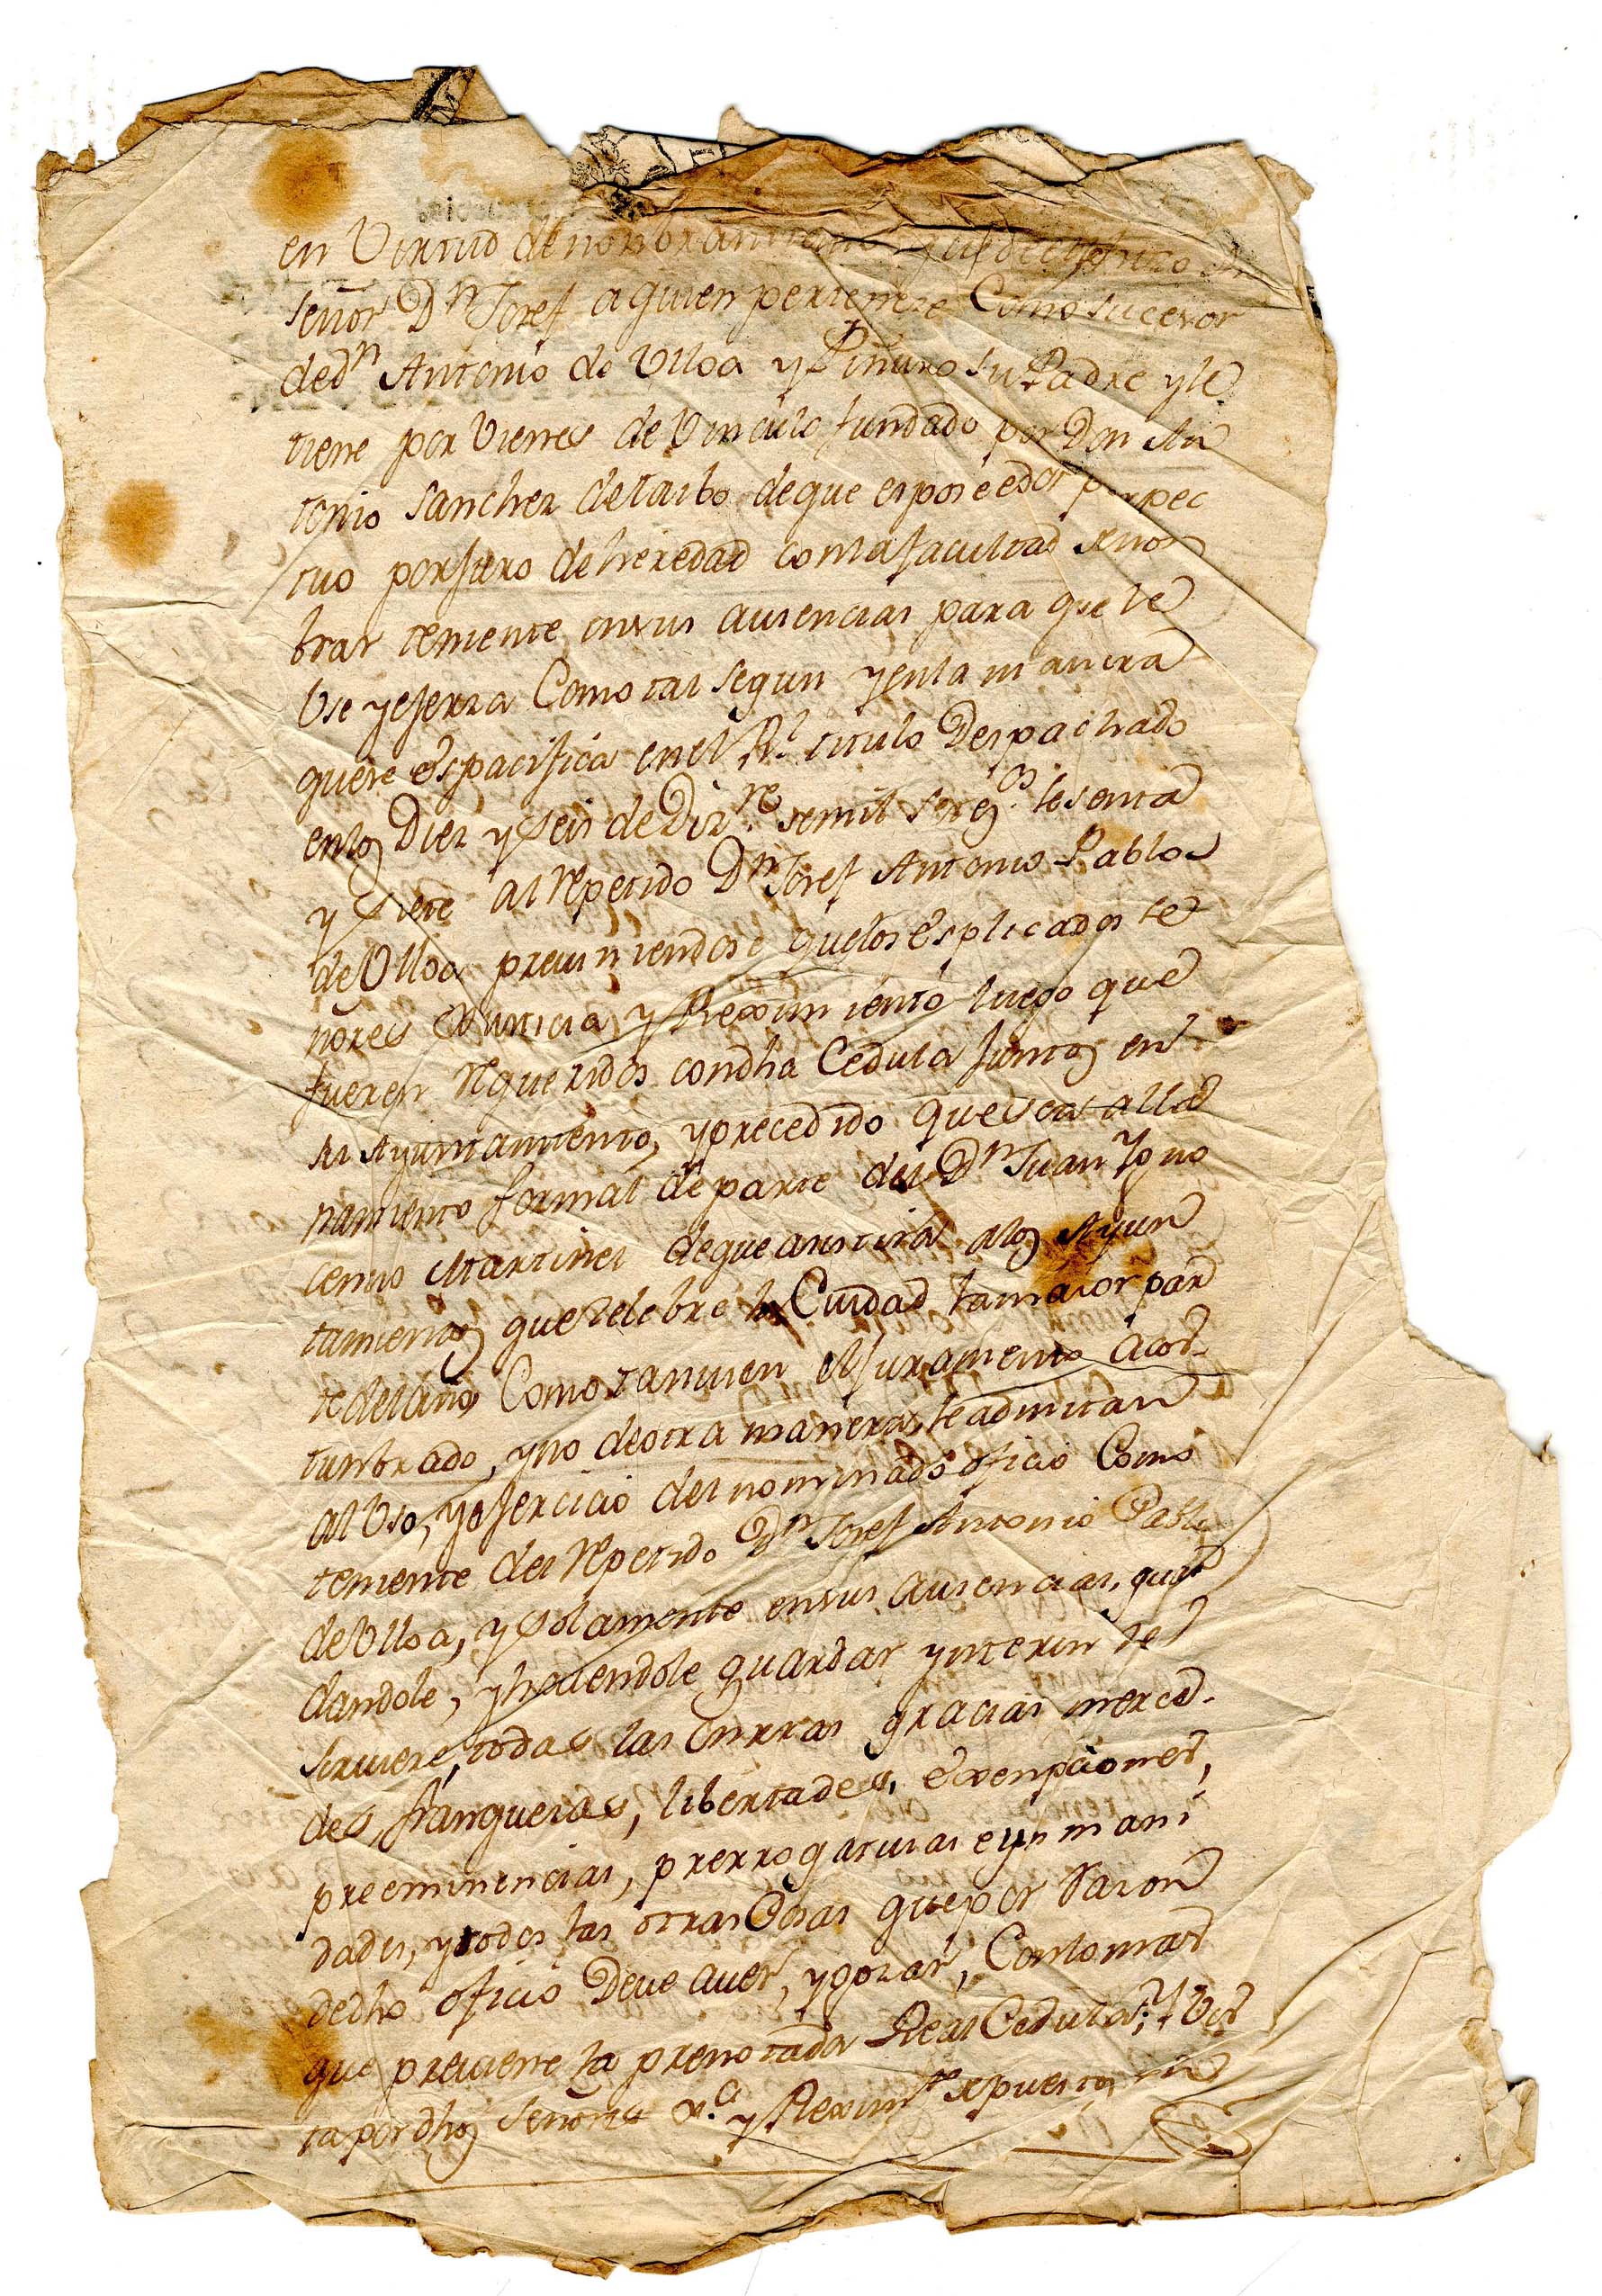 en Virtud de nombramiento que de el hizo
señor Dn Joref a quien pertenece Como sucesor
de dn Antonio de Ulloa y Piñuro su Padre y le
tiene por Vienes de Vinculo fundado por Don An
tonio Sanchez de taibo de que es poseedor perpec
tuo por juro de heredad con la facultad nom
brar teniente en sus ausencias para que le
Use y ejerza Como tal segun y en la manera
que se espacifica en el Rl titulo Despachado
en los Diez y seis de Dizre de mil setezos sesenta
y siete al repetido Dn Joref Antonio Pablos
de Ulloa previniendose que los esplicados se
ñores Justicia y Reximiento luego que
fueren requeridos con dha Cedula juntos en
su Ayuntamiento, y precedido que sea alla
namiento formal de parte del Dn Juan Yno
cencio Martinez de que asistira a los Ayun
tamientos que Zelebre la Ciudad la maior par
te del año, Como tamvien el juramento acos
tumbrado, y no de otra manera, le admitan
al Uso, y ejercicio del nominado oficio Como
teniente del repetido Dn Joref Antonio Pablos
de Ulloa, y solamente en sus ausencias, guar
dandole, y haciendole guardar ynterin le
sirviere, todas las onrras gracias merce
des, franquezas, libertades, exenpciones,
preeminencias, prerrogativas e ynmuni
dades, y todas las otras Cosas que por Razon
de dho oficio Deve aver, y gozar, Con lo mas
que previene la prenotada Real Cedula; Y Vis
ta por dhos Señores Xa y Reximto expuestos